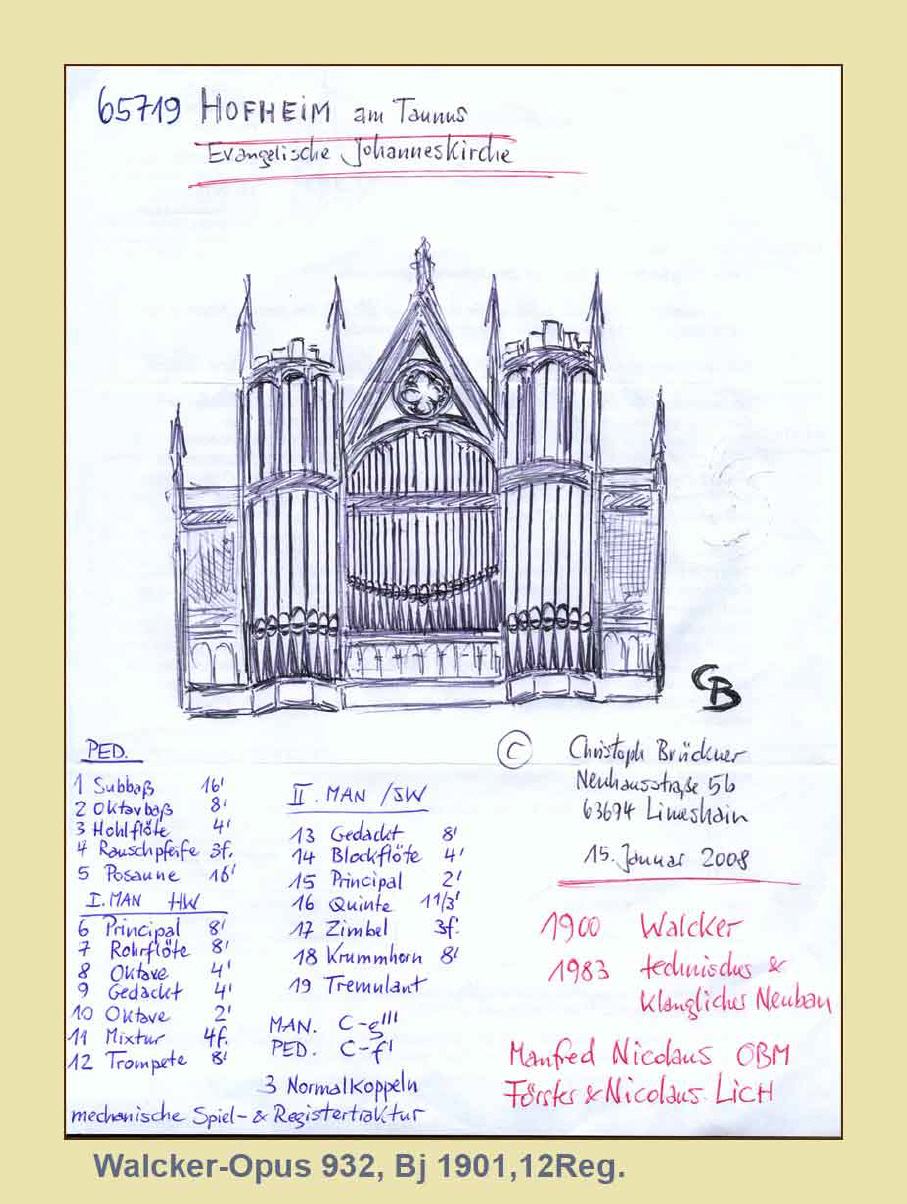 65719 HOFHEIM am Taunus
Evangelische Johanneskirche
CB
PED.
1 Subbaß 16'
2 Oktavbaß 8'
3 Hohlflöte 4'
4 Rauschpfeife 3f.
5 Posaune 16'
I. MAN HW
6 Principal 8'
7 Rohrflöte 8'
8 Oktave 4'
9 Gedackt 4'
10 Oktave 2'
11 Mixtur 4f.
12 Trompete 8'
II. MAN /SW
13 Gedackt 8'
14 Blockflöte 4'
15 Principal 2'
16 Quinte 11/3'
17 Zimbel 3f.
18 Krummhorn 8'
19 Tremulant
MAN. C-g'''
PED. C-f'
3 Normalkoppeln
mechanische Spiel- & Registertraktur
© Christoph Brückner
Neuhausstraße 5b
63694 Limeshain
15. Januar 2008
1900 Walcker
1983 technisches &
klangliches Neubau
Manfred Nicolaus OBM
Förster & Nicolaus LicH
Walcker-Opus 932, Bj 1901,12Reg.